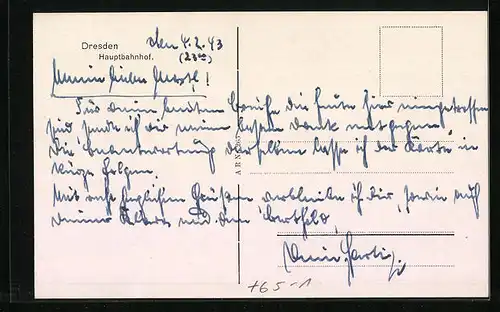 Dresden
Hauptbahnhof.
den 4.2.43
(23⁰⁰)
Mein lieber !
Für deine beiden Briefe die heute hier eingetroffen
sind sende ich dir meinen besten Dank entgegen.
Die Beantwortung derselben lasse ich der Karte in
Kürze folgen.
Mit recht herzlichen Grüßen verbleibe ich dir, sowie auch
deinen Eltern und dem
Dein
ARN
+65-1